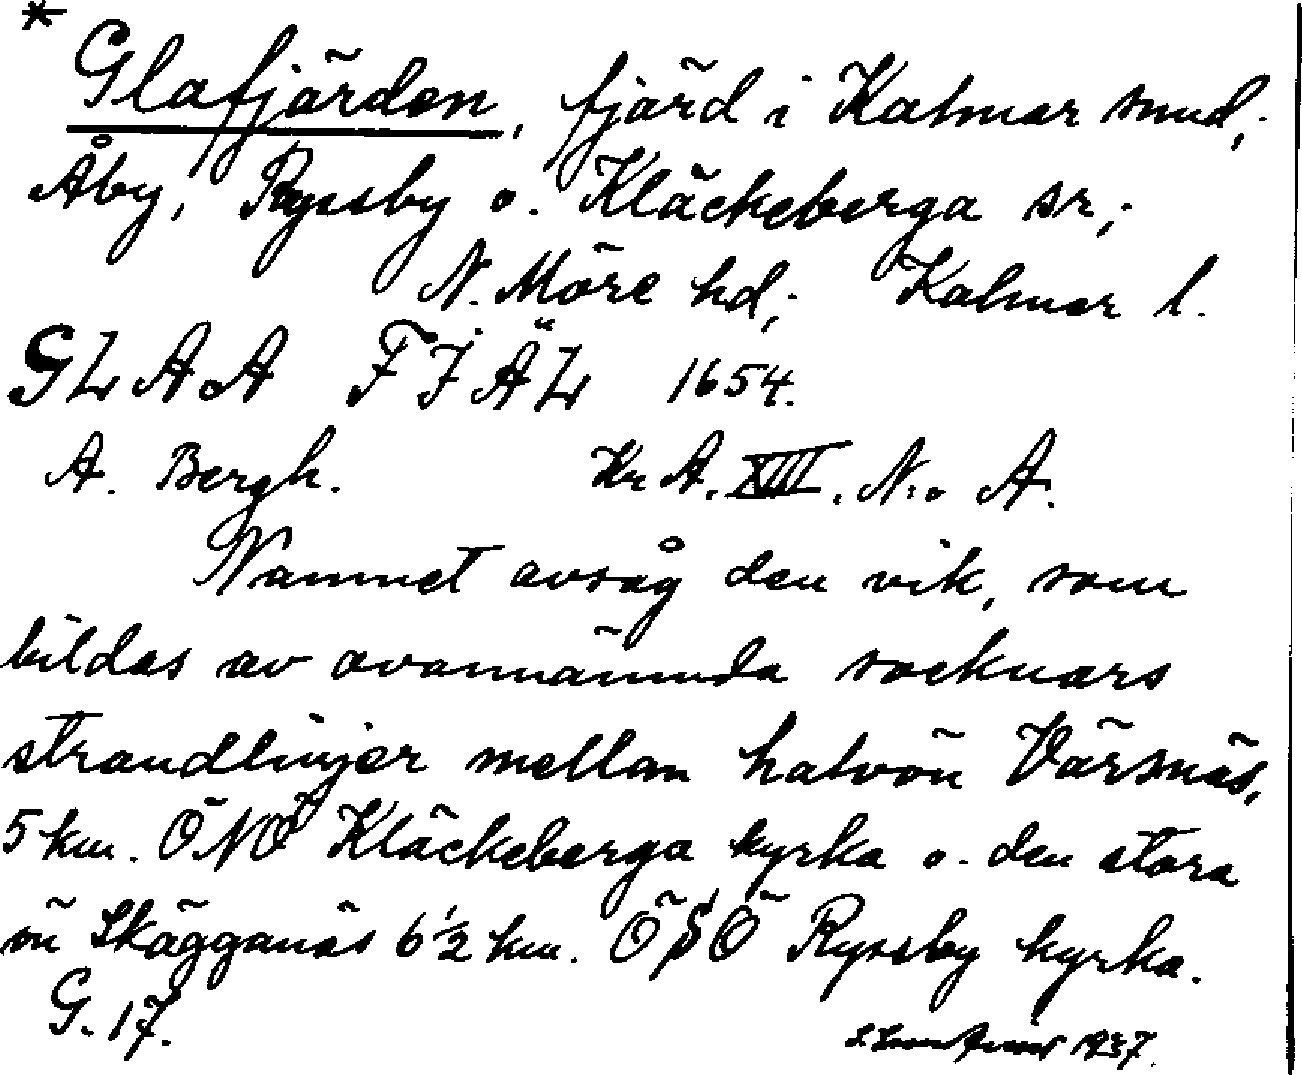 * Glafjärden, fjärd i Kalmar sund,
Åby, Ryssby o. Kläckeberga sr,
N. Möre hd, Kalmar l.
GLAA FJÄL 1654.
A. Bergh. Kr A. XIII. N:o A.
Namnet avsåg den vik, som
bildas av ovannämnda socknars
strandlinjer mellan halvön Värsnäs,
5 km. ÖNÖ Kläckeberga kyrka o. den stora
ön Skägganäs 6 1/2 km. ÖSÖ Ryssby kyrka.
G. 17.
1937.